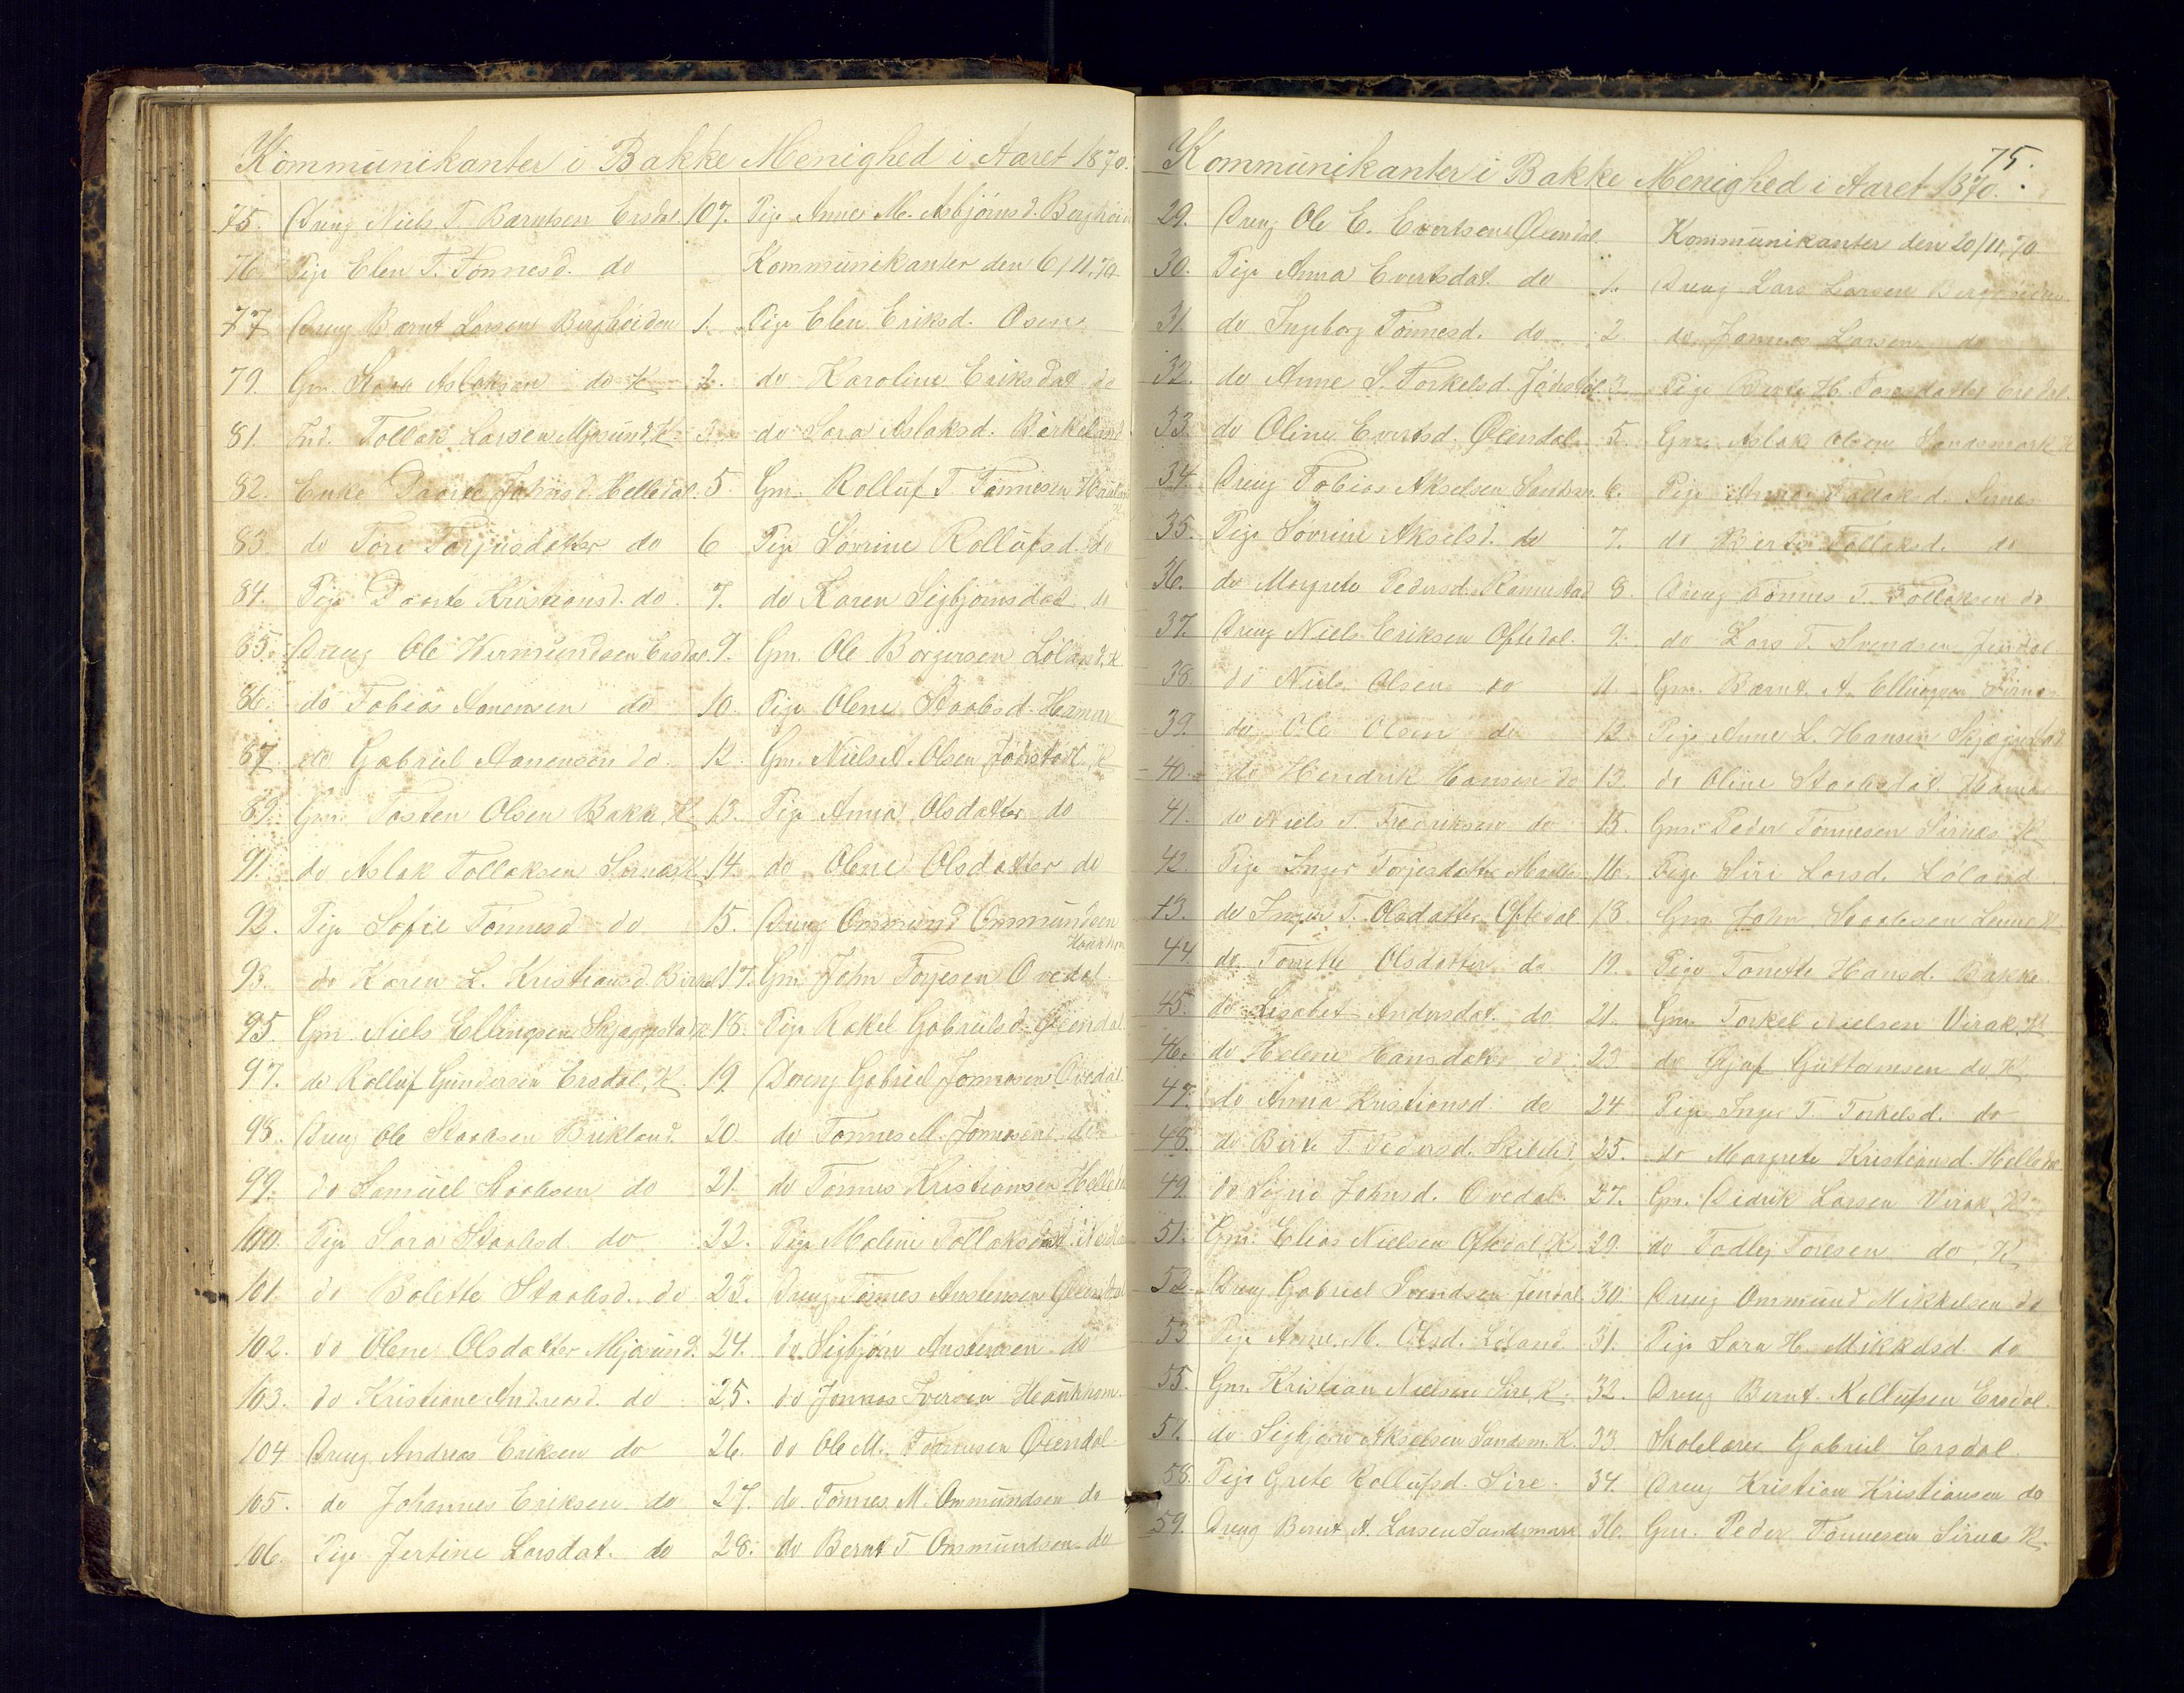 Kommunikanter i Bakke Menighed i Aaret 1870.
75. Dreng Niels T. Barntsen Ersdal.
76. Pige Elen T. Tönnesd. do
77 Dreng Bernt Larsen Berghöiden
79. Gm. Aslaksen do K
81. Tollak Larsen Mjosund, K.
82. Enke Daarte Johnsd. Helledal.
83. do Tore Torjusdatter do
84. Pige Daarte Kristiansd. do
85. Dreng Ole Hermundsen Ersdal.
86. do Tobias Aanensen do
87. do Gabriel Aanensen do
89. Gm. Tosten Olsen Bakke, K
91. do Aslak Tollaksen Sirnes, K
92. Pige Sofie Tönnesd do
93. do Karen L. Kristiansd. Birkel
95. Gm Niels Ellingsen Skjaggestad K
97. do Rolluf Gundersen Ersdal, K.
98. Dreng Ole Staalesen Birkland.
99. do Samuel Staalesen do
100. Pige Sara Staalesd do
101. do Bolette Staalesd. do
102. do Olene Olsdatter Mjosund.
103. do Kristiane Andreasd. do
104 Dreng Andreas Eriksen do
105. do Johannes Eriksen do
106. Pige Jertine Larsdat. do
107. Pige Anne M. Asbjörnsd. Berghöid
Kommunikanter den 6/11, 70
1. Pige Elen Eriksd. Osen
2. do Karoline Eriksdat do
3. do Sara Aslaksd. Birkeland
5. Gm. Rolluf T. Tönnesen
K
6 Pige Sörine Rollufsd. do
7. do Karen Sigbjörnsdat. do
9. Gm. Ole Borgersen Löland, K
10. Pige Olene Staalesd. Hamar
12. Gm. Niels A. Olsen Jödestöl, K
13. Pige Anna Olsdatter do
14. do Olene Olsdatter do
15. Dreng Ommund Ommundsen
Haukhom
17. Gm John Torjesen Ovedal
18. Pige Rakel Gabrielsd. Öiendal
19. Dreng Gabriel Jonnasen Ovedal.
20. do Tönnes M. Jonnasen do
21. do Tönnes Kristiansen Helled
22. Pige Malene Tollaksdat.
23. Dreng Tönnes Austensen Öiendal
24. do Sigbjörn Austensen do
25. do Jonnas Iversen Haukhom.
26. do Ole M. Tönnesen Öiendal
27. do Tönnes M. Ommundsen do
28. do Bernt T Ommundsen do
75.
Kommunikanter i Bakke Menighed i Aaret 1870.
29. Dreng Ole E. Evertsen Öiendal.
30. Pige Anna Evertsdat. do
31. do Ingeborg Tönnesd. do
32. do Anne S. Torkelsd. Jödestöl.
33. do Oline Evertsd. Öiendal
34. Dreng Tobias Akselsen Sandsm.
35. Pige Sövrine Akselsd. do
36. do Margrete Pedersd.
37. Dreng Niels Eriksen Oftedal.
38. do Niels Olsen do
39. do Ole Olsen do
40. do Hendrik Hansen do
41. do Niels T. Fredriksen do
42. Pige Inger Torjesdatter
43. do Inger T. Olsdatter Oftedal
44 do Tonette Olsdatter do
45. do Lisabet Andersdat. do
46. do Helene Hansdatter do
47. do Anna Kristiansd. do
48. do Berte T. Pedersd.
49. do Signe Johnsd. Ovedal.
51. Gm. Elias Nielsen Oftedal, K
52. Dreng Gabriel Svendsen Fendal
53 Pige Anne M. Olsd. Löland
55. Gm. Kristian Nielsen Sire, K.
57. do Sigbjörn Akselsen Sandsm. K.
58. Pige Grete Rollufsd. Sire.
59. Dreng Bernt A. Larsen Sandsmark
Kommunikanter den 20/11, 70
1. Dreng Lars Larsen Berghöiden
2. do Jonnas Larsen do
3. Pige Berte H. Ersdal.
5. Gm. Aslak Olsen Sandsmark K
6. Pige Anna Tollaksd. Sirnes
7. do Berte Tollaksd. do
8. Dreng Tönnes T. Tollaksen do
9. do Lars T. Svendsen Fendal
11. Gm. Bernt A. Ellingsen Sirnes
12. Pige Anne L. Hansen Skjaggestad
13. do Oline Staalesdat. Hamar
15. Gm. Peder Tönnesen Sirnes K
16. Pige Siri Larsd. Löland.
18. Gm John Staalesen K
19. Pige Tonette Hansd. Bakke
21. Gm. Torkel Nielsen Virak, K
23. do Guttormsen do, K
24 Pige Inger T Torkelsd. do
25. do Margrete Kristiansd. Helledal
27. Gm. Didrik Larsen Virak, K
29. do Tadlej Toresen do, K
30. Dreng Ommund Mikkelsen do
31. Pige Sara H. Mikkelsd. do
32. Dreng Bernt Rollufsen Ersdal.
33. Skolelærer Gabriel Ersdal.
34. Dreng Kristian Kristiansen do
36. Gm. Peder Tönnesen Sirnes K.